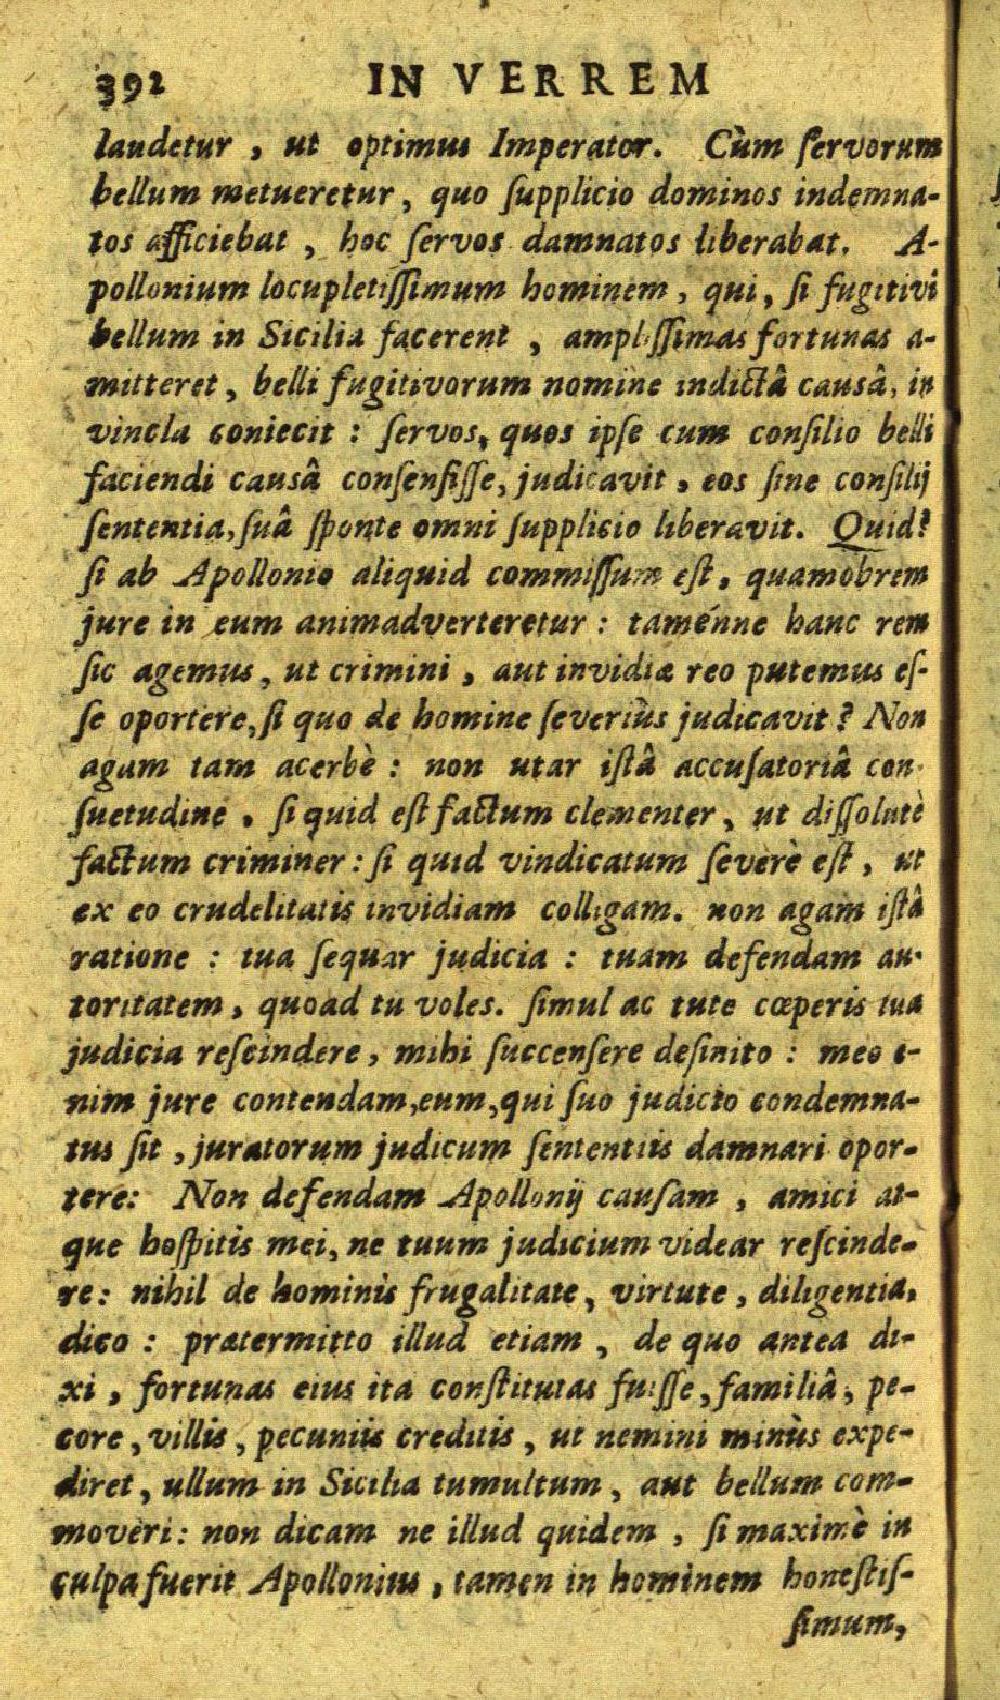 392 IN VERREM
laudetur , ut optimus Imperator. Cùm ſervorum
bellum metueretur, quo ſupplicio dominos indemna-
tos afficiebat , hoc ſervos damnatos liberabat. A-
pollonium locupletiſſimum hominem, qui, ſi fugitivi
bellum in Sicilia facerent , ampliſſimas fortunas a-
mitteret, belli fugitivorum nomine indictâ causâ, in
vincla coniecit : ſervos, quos ipſe cum conſilio belli
faciendi causâ conſenſiſſe, judicavit , eos ſine conſilij
ſententia, ſuâ ſponte omni ſupplicio liberavit. Quid?
ſi ab Apollonio aliquid commiſſum eſt, quamobrem
jure in eum animadverteretur : taménne hanc rem
ſic agemus, ut crimini , aut invidiæ reo putemus eſ-
ſe oportere, ſi quo de homine ſeveriùs judicavit? Non
agam tam acerbè : non utar iſtâ accuſatoriâ con-
ſuetudine , ſi quid eſt factum clementer, ut diſſolutè
factum criminer : ſi quid vindicatum ſeverè eſt , ut
ex eo crudelitatis invidiam colligam. non agam iſtâ
ratione : tua ſequar judicia : tuam defendam au-
toritatem, quoad tu voles. ſimul ac tute cœperis tua
judicia reſcindere, mihi ſuccenſere deſinito : meo e-
nim jure contendam, eum, qui ſuo judicio condemna-
tus ſit , juratorum judicum ſententiis damnari opor-
tere: Non defendam Apollonij cauſam , amici at-
que hoſpitis mei, ne tuum judicium videar reſcinde-
re: nihil de hominis frugalitate, virtute, diligentia,
dico : prætermitto illud etiam , de quo antea di-
xi , fortunas eius ita conſtitutas fuiſſe, familiâ, pe-
core, villis, pecuniis creditis , ut nemini minùs expe-
diret, ullum in Sicilia tumultum, aut bellum com-
moveri: non dicam ne illud quidem , ſi maximè in
culpa fuerit Apollonius , tamen in hominem honeſtiſ-
ſimum,